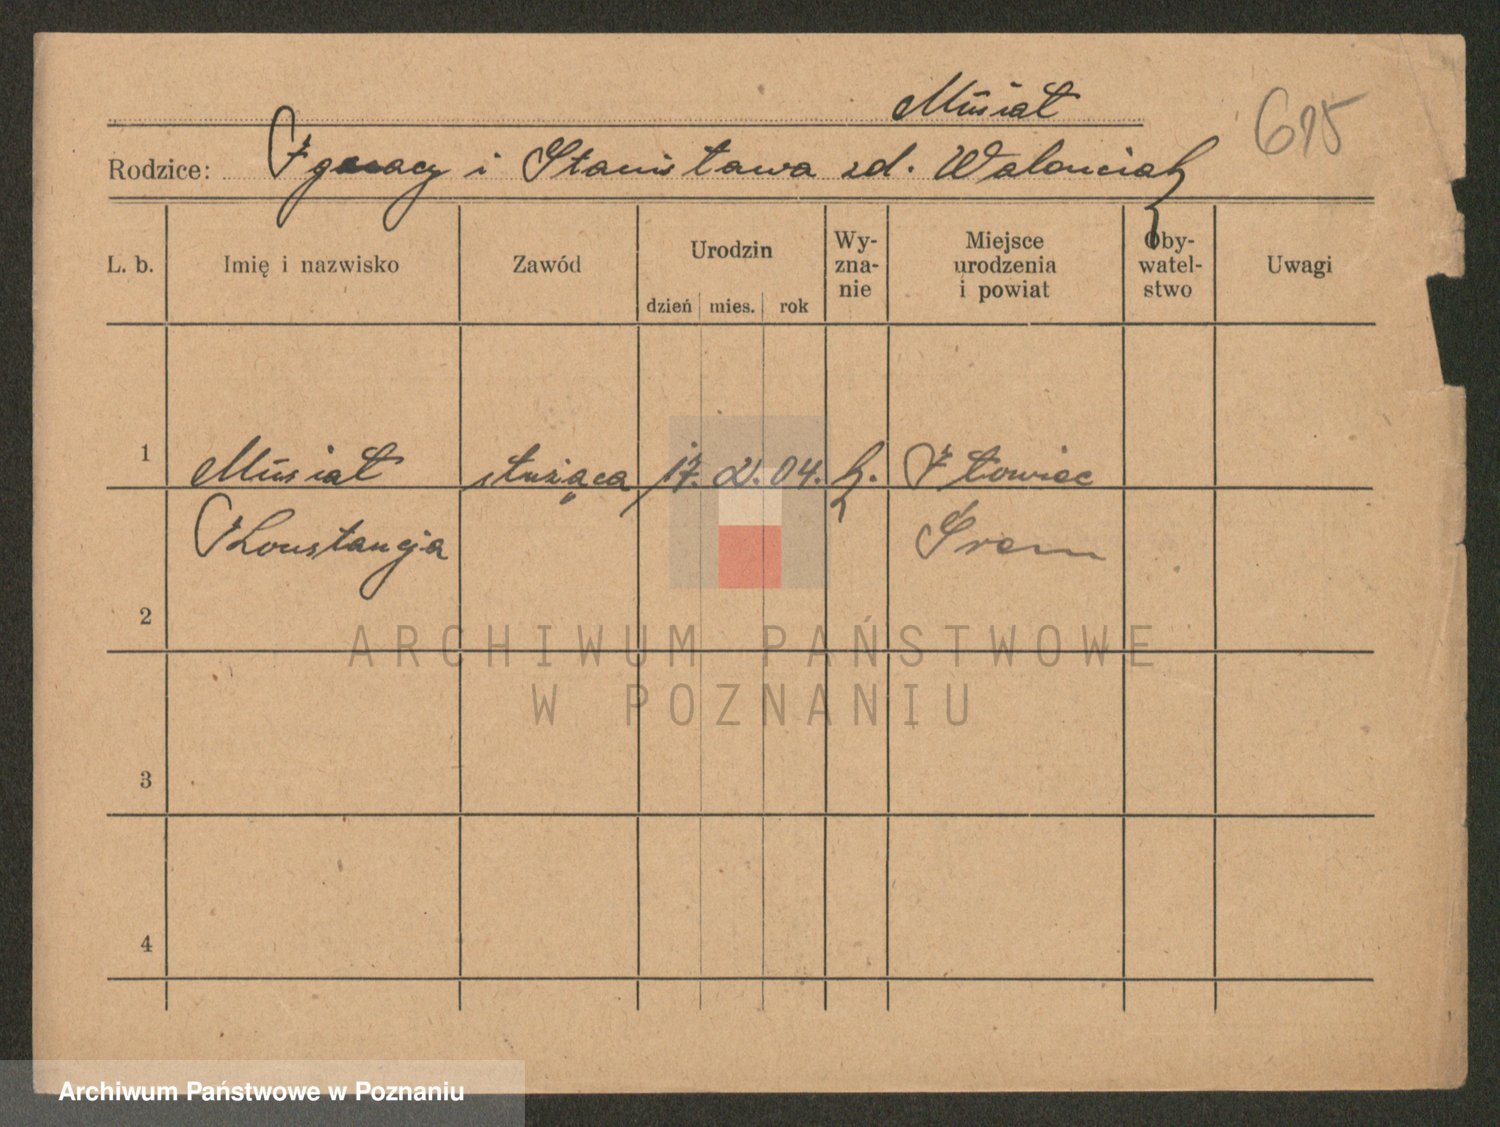 Musiał
615
Rodzice: Ignacy i Stanisława zd. Walenciak
L. b. Imię i nazwisko Zawód Urodzin dzień mies. rok Wy-zna-nie Miejsce urodzenia i powiat Oby-watel-stwo Uwagi
1 Musiał służąca 17. 2. 04. k. Iłowiec
Konstancja Śrem
2
3
4
ARCHIWUM PAŃSTWOWE
W POZNANIU
Archiwum Państwowe w Poznaniu